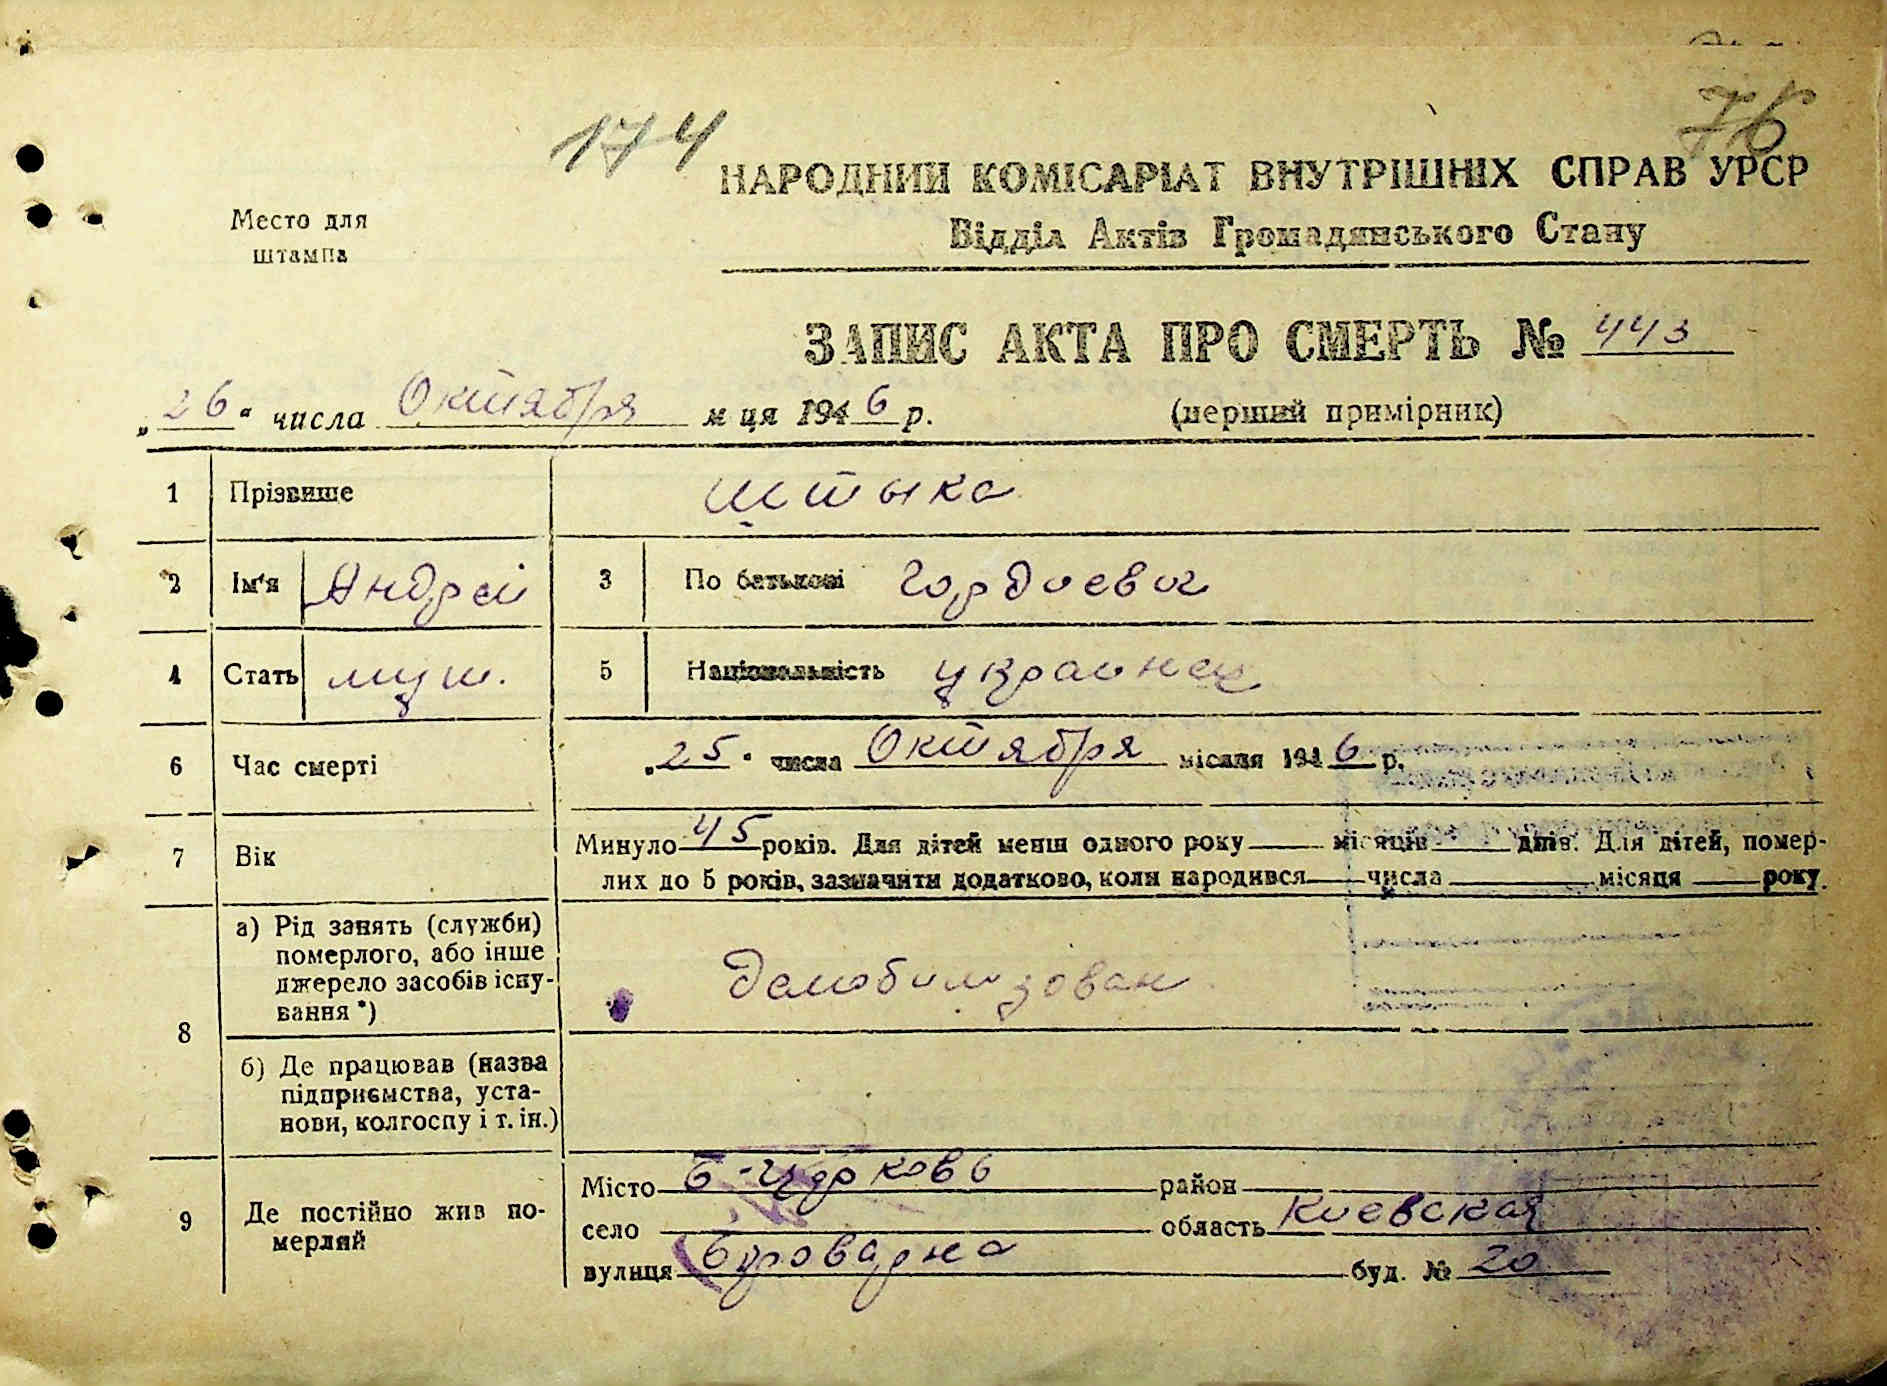 174
76
Место для
штампа
НАРОДНИЙ КОМІСАРІАТ ВНУТРІШНІХ СПРАВ УРСР
Відділ Актів Громадянського Стану
ЗАПИС АКТА ПРО СМЕРТЬ № 443
„26“ числа Октября м ця 1946 р. (перший примірник)
1 Прізвище Штыка
2 Ім'я Андрей 3 По батькові Гордиевич
4 Стать муж. 5 Національність украинец
6 Час смерті „25“ числа Октября місяця 1946 р.
7 Вік Минуло 45 років. Для дітей менш одного року місяців днів. Для дітей, помер-
лих до 5 років, зазначити додатково, коли народився числа місяця року.
8 а) Рід занять (служби)
померлого, або інше
джерело засобів існу-
вання *)
Демобилизован
б) Де працював (назва
підприємства, уста-
нови, колгоспу і т. ін.)
9 Де постійно жив по-
мерлий
Місто Б-Церковь район
село область Киевская
вулиця Броварна буд. № 20